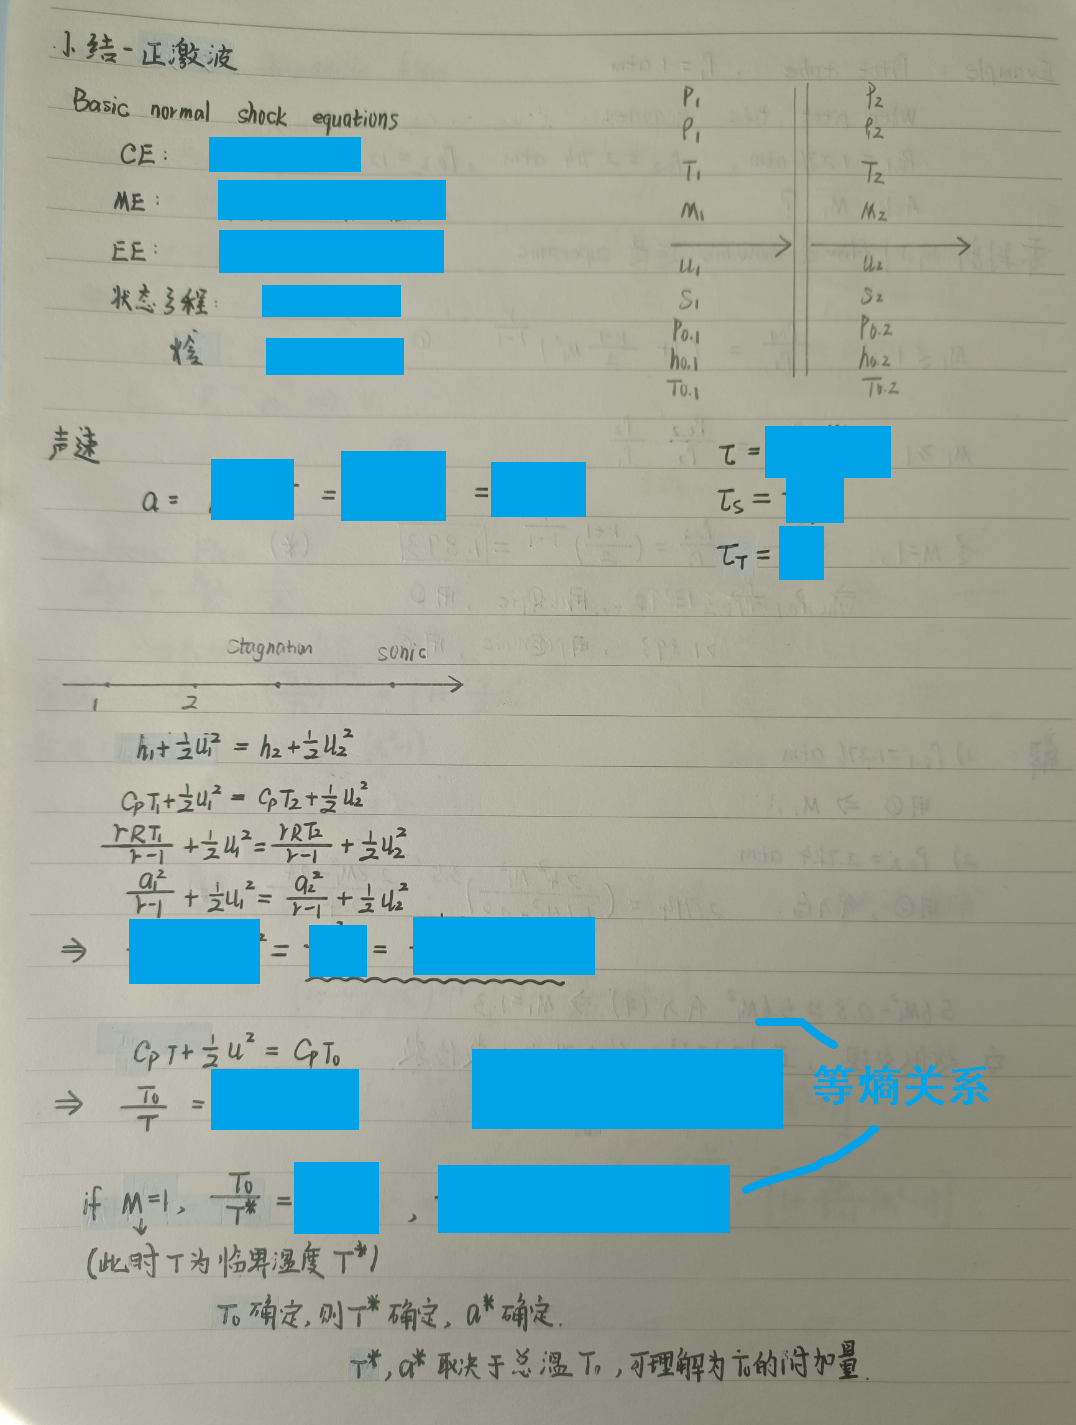 小结-正激波
Basic normal shock equations
CE:
ME:
EE:
状态方程:
焓
P₁ P₂
ρ₁ ρ₂
T₁ T₂
M₁ M₂
u₁ u₂
S₁ S₂
P₀.₁ P₀.₂
h₀.₁ h₀.₂
T₀.₁ T₀.₂
声速
a = = =
τ =
τs =
τT =
stagnation sonic
1 2
h₁+½u₁² = h₂+½u₂²
CpT₁+½u₁² = CpT₂+½u₂²
γRT₁/(γ-1) + ½u₁² = γRT₂/(γ-1) + ½u₂²
a₁²/(γ-1) + ½u₁² = a₂²/(γ-1) + ½u₂²
⇒ = =
CpT+½u² = CpT₀
⇒ T₀/T =
等熵关系
if M=1, T₀/T* = ,
(此时T为临界温度T*)
T₀确定,则T*确定, a*确定.
T*, a*取决于总温T₀,可理解为T₀的附加量.